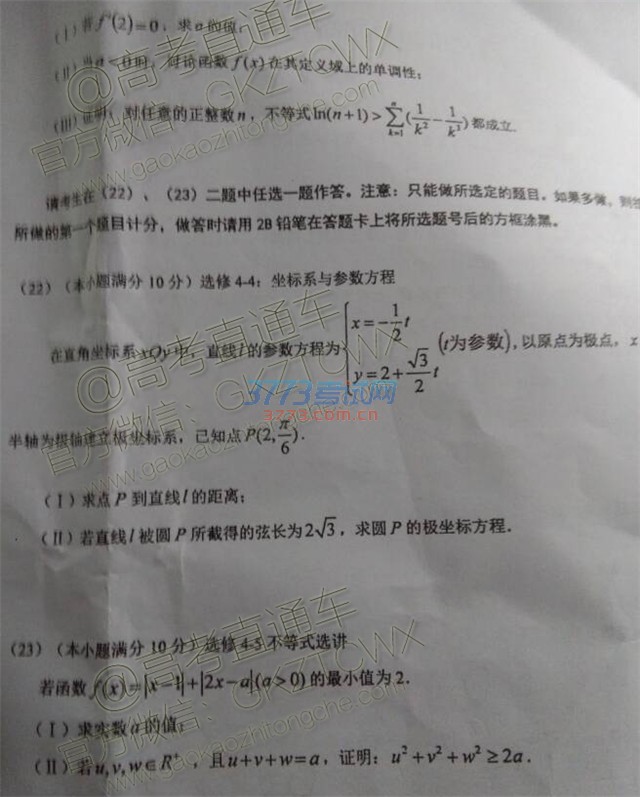 (Ⅰ) 若f'(2)=0, 求a的值;
(Ⅱ) 当a<0时, 讨论函数f(x)在其定义域上的单调性;
(Ⅲ) 证明: 对任意的正整数n, 不等式ln(n+1)>∑_{k=1}^{n}(1/k²-1/k³)都成立.
请考生在(22)、(23)二题中任选一题作答。注意:只能做所选定的题目。如果多做,则
所做的第一个题目计分,做答时请用2B铅笔在答题卡上将所选题号后的方框涂黑。
(22)(本小题满分10分)选修4-4:坐标系与参数方程
在直角坐标系xOy中,直线l的参数方程为{x=-1/2 t, y=2+√3/2 t (t为参数),以原点为极点,x
半轴为极轴建立极坐标系,已知点P(2,π/6).
(Ⅰ)求点P到直线l的距离;
(Ⅱ)若直线l被圆P所截得的弦长为2√3,求圆P的极坐标方程.
(23)(本小题满分10分)选修4-5不等式选讲
若函数f(x)=|x-1|+|2x-a|(a>0)的最小值为2.
(Ⅰ)求实数a的值;
(Ⅱ)若u,v,w∈R⁺,且u+v+w=a,证明:u²+v²+w²≥2a.
@高考直通车
官方微信:GKZTCWX
www.gaokaozhitongche.com
3773考试网
3773.com.cn
@高考直通车
官方微信:GKZTCWX
www.gaokaozhitongche.com
@高考直通车
官方微信:GKZTCWX
www.gaokaozhitongche.com